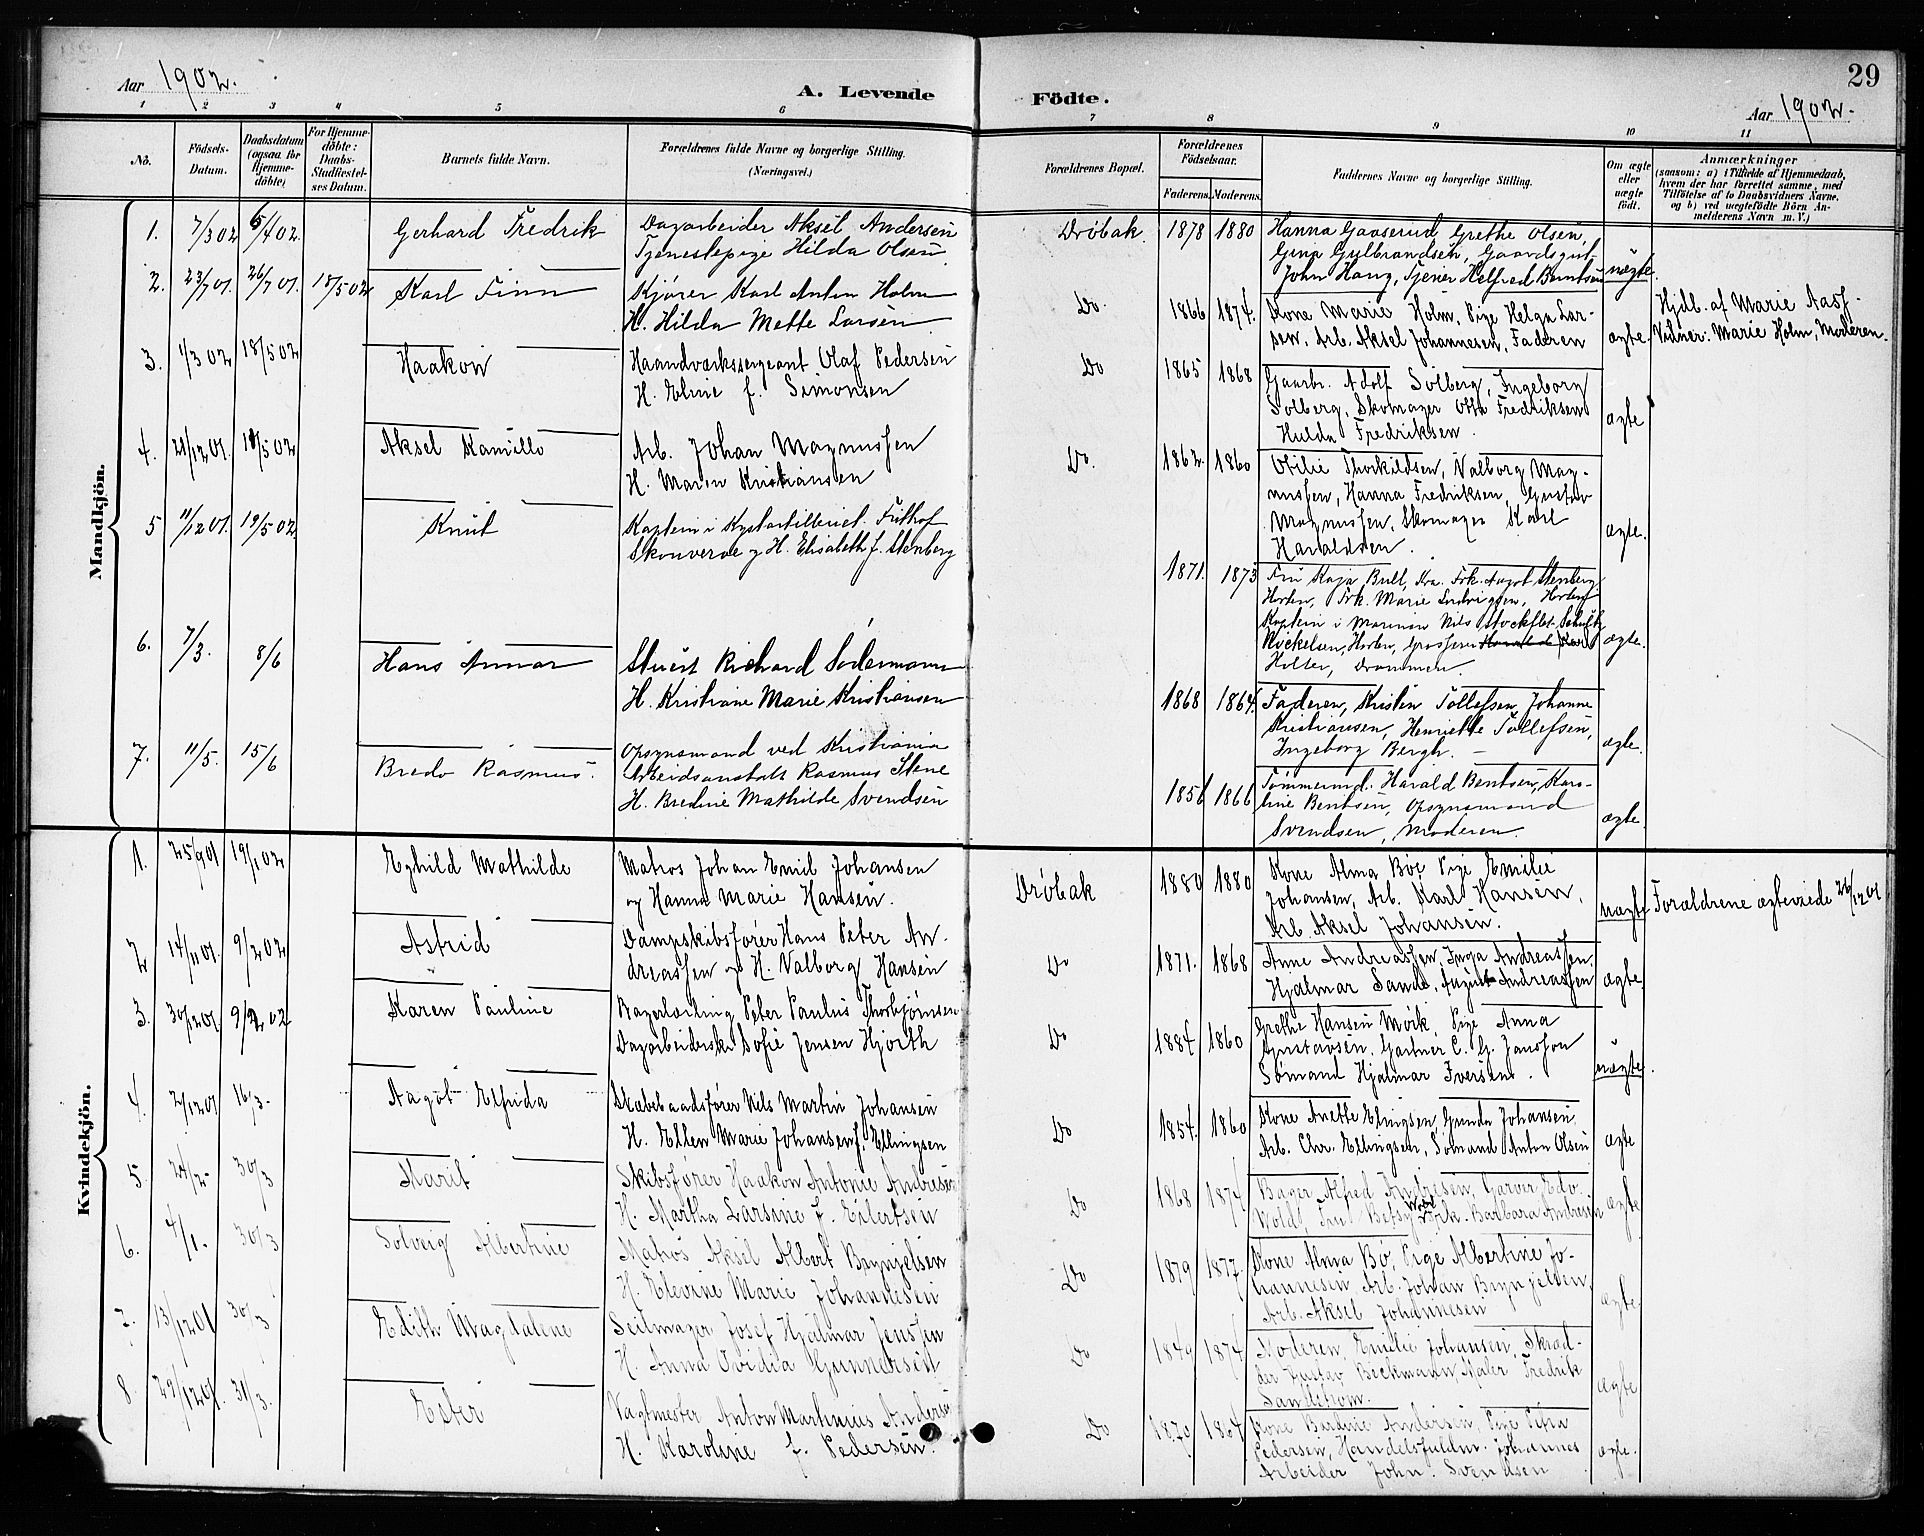 29
Aar 1902.
A. Levende Födte.
Aar 1902.
1 2 3 4 5 6 7 8 9 10 11
No.
Födsels-Datum.
Daabsdatum (ogsaa for Hjemme-döbte)
For Hjemme-döbte: Daabs-Stadfæstel-ses Datum.
Barnets fulde Navn.
Forældrenes fulde Navne og borgerlige Stilling.
(Næringsvei.)
Forældrenes Bopæl.
Forældrenes Födselsaar.
Faderens. Moderens.
Faddernes Navne og borgerlige Stilling.
Om ægte eller uægte födt.
Anmærkninger
(saasom: a) i Tilfælde af Hjemmedaab, hvem der har forrettet samme, med Tilföielse af to Daabsvidners Navne, og b) ved uægtefödte Börn Anmelderens Navn m. V.)
Mandkjön.
1. 7/3 02 6/4 02. Gerhard Fredrik
Dagarbeider Aksel Andersen
Tjenestepige Hilda Olsen
Dröbak. 1878 1880
Hanna Gaaserud Grethe Olsen,
Gina Gulbrandsen, Gaardsgut
John Haug, Tjener Helfred Berntsen
uægte.
2. 23/7 01. 26/7 01. 18/5 02 Karl Finn
Kjörer Karl Anton Holm
H. Hilda Mette Larsen
Do. 1866 1874.
Kone Marie Holm, Pige Helga Lar-
sen, Arb. Aksel Johannesen, Faderen
ægte.
Hjdb. af Marie Aass-
Vidner: Marie Holm, Moderen.
3. 1/3 02 18/5 02 Haakon
Haandværkssergeant Olaf Pedersen
H. Eline f. Simonsen
Do 1865 1868
Gaarbr. Adolf Solberg, Ingeborg
Solberg, Skomager Otto Fredriksen
Hulda Fredriksen.
ægte
4. 21/12 01. 18/5 02 Aksel Kamillo
Arb. Johan Magnussen
H. Maren Kristiansen
Do. 1862. 1860
Otilie Thorkildsen, Valborg Mag-
nussen, Hanna Fredriksen, Gustav
Magnussen, Skomager Karl
Haraldsen.
ægte.
5 11/12 01. 19/5 02 Knut
Kaptein i Kystartilleriet Frithof
Skouverøe og H. Elisabeth f. Stenberg
1871. 1873
Fru Kaja Bull, Kra. Frk. Aagot Stenberg
Horten, Frk. Marie Ludvigsen, Horten
Kaptein i Marinen Nils Stockflet Schultz
Horten, Grosserer
Holter, Drammen.
ægte.
6. 7/3. 8/6 Hans Annar
Stuert Richard Södermann
H. Kristiane Marie Kristiansen
1868 1864.
Faderen, Kristin Tollefsen, Johanne
Kristiansen, Henriette Tollefsen,
Ingeborg Bergh. -
ægte.
7. 11/5. 15/6 Bredo Rasmus.
Opsynsmand ved Kristiania
Arbeidsanstalt Rasmus Stene
H. Bredine Mathilde Svendsen
1856 1866
Tömmermd. Harald Bentsen, Karo-
line Bentsen, Opsynsmand
Svendsen, Moderen.
ægte.
Kvindekjön.
1. 25/9 01 19/1 02 Eghild Mathilde
Matros Johan Emil Johansen
og Hanna Marie Hansen.
Dröbak 1880 1880
Kone Alma Böe, Pige Emilie
Johansen, Arb. Karl Hansen,
Arb. Aksel Johansen.
uægte Forældrene ægteviede 26/12 01
2 14/11 01. 9/2 02 Astrid
Dampskibsförer Hans Peter An-
dreassen og H. Valborg Hansen
Do 1871. 1868
Anne Andreassen, Inga Andreassen,
Hjalmar Sande, August Andreassen
ægte
3. 30/12 01. 9/2 02 Karen Pauline
Bagerlærling Peter Paulus Thorbjörnsen
Dagarbeiderske Sofie Jensen Hjorth
Do 1884 1860
Grethe Hansen Mörk, Pige Anna
Gustavsen, Gartner C. G. Jansson
Sömand Hjalmar Iversen.
uægte.
4. 2/12 01 16/3- Aagot Elfrida
Skøbebaadsförer Nils Martin Johansen
H. Ellen Marie Johansen f. Ellingsen
Do 1854. 1860
Kone Anette Elingsen, Gunda Johansen
Arb. Chr. Ellingsen, Sömand Anton Olsen
ægte
5. 24/2- 30/3 Marit
Skibsförer Haakon Antonie Andresen
H. Martha Larsine f. Eilertsen
Do 1868 1874
Bager Alfred Andresen, Garver Edv.
Wold, Frk. Betsy Wold Frk. Barbara Andresen
ægte
6. 4/1- 30/3 Solveig Albertine
Matros Aksel Albert Brynjelsen
H. Elevine Marie Johannesen
Do 1879 1877
Kone Alma Bö, Pige Albertine Jo-
hannesen, Arb. Johan Brynjelsen,
Arb. Aksel Johannesen
ægte.
7. 13/12 01 30/3 Edith Magdalene
Seilmager Josef Hjalmar Jenssen
H. Anna Ovidia Gunnersen
Do 1849 1874
Moderen, Emilie Johansen, Skræd-
der Gustav Beckmann, Maler Fredrik
Sandström.
ægte
8. 29/12 01. 31/3. Ester
Vagtmester Anton Martinius Andersen
H. Karoline f. Pedersen.
Do 1870 1864
Kone Bardine Andersen, Pige Petra
Pedersen, Handelsfuldm. Johannes
Arbeider John Svendsen
ægte.